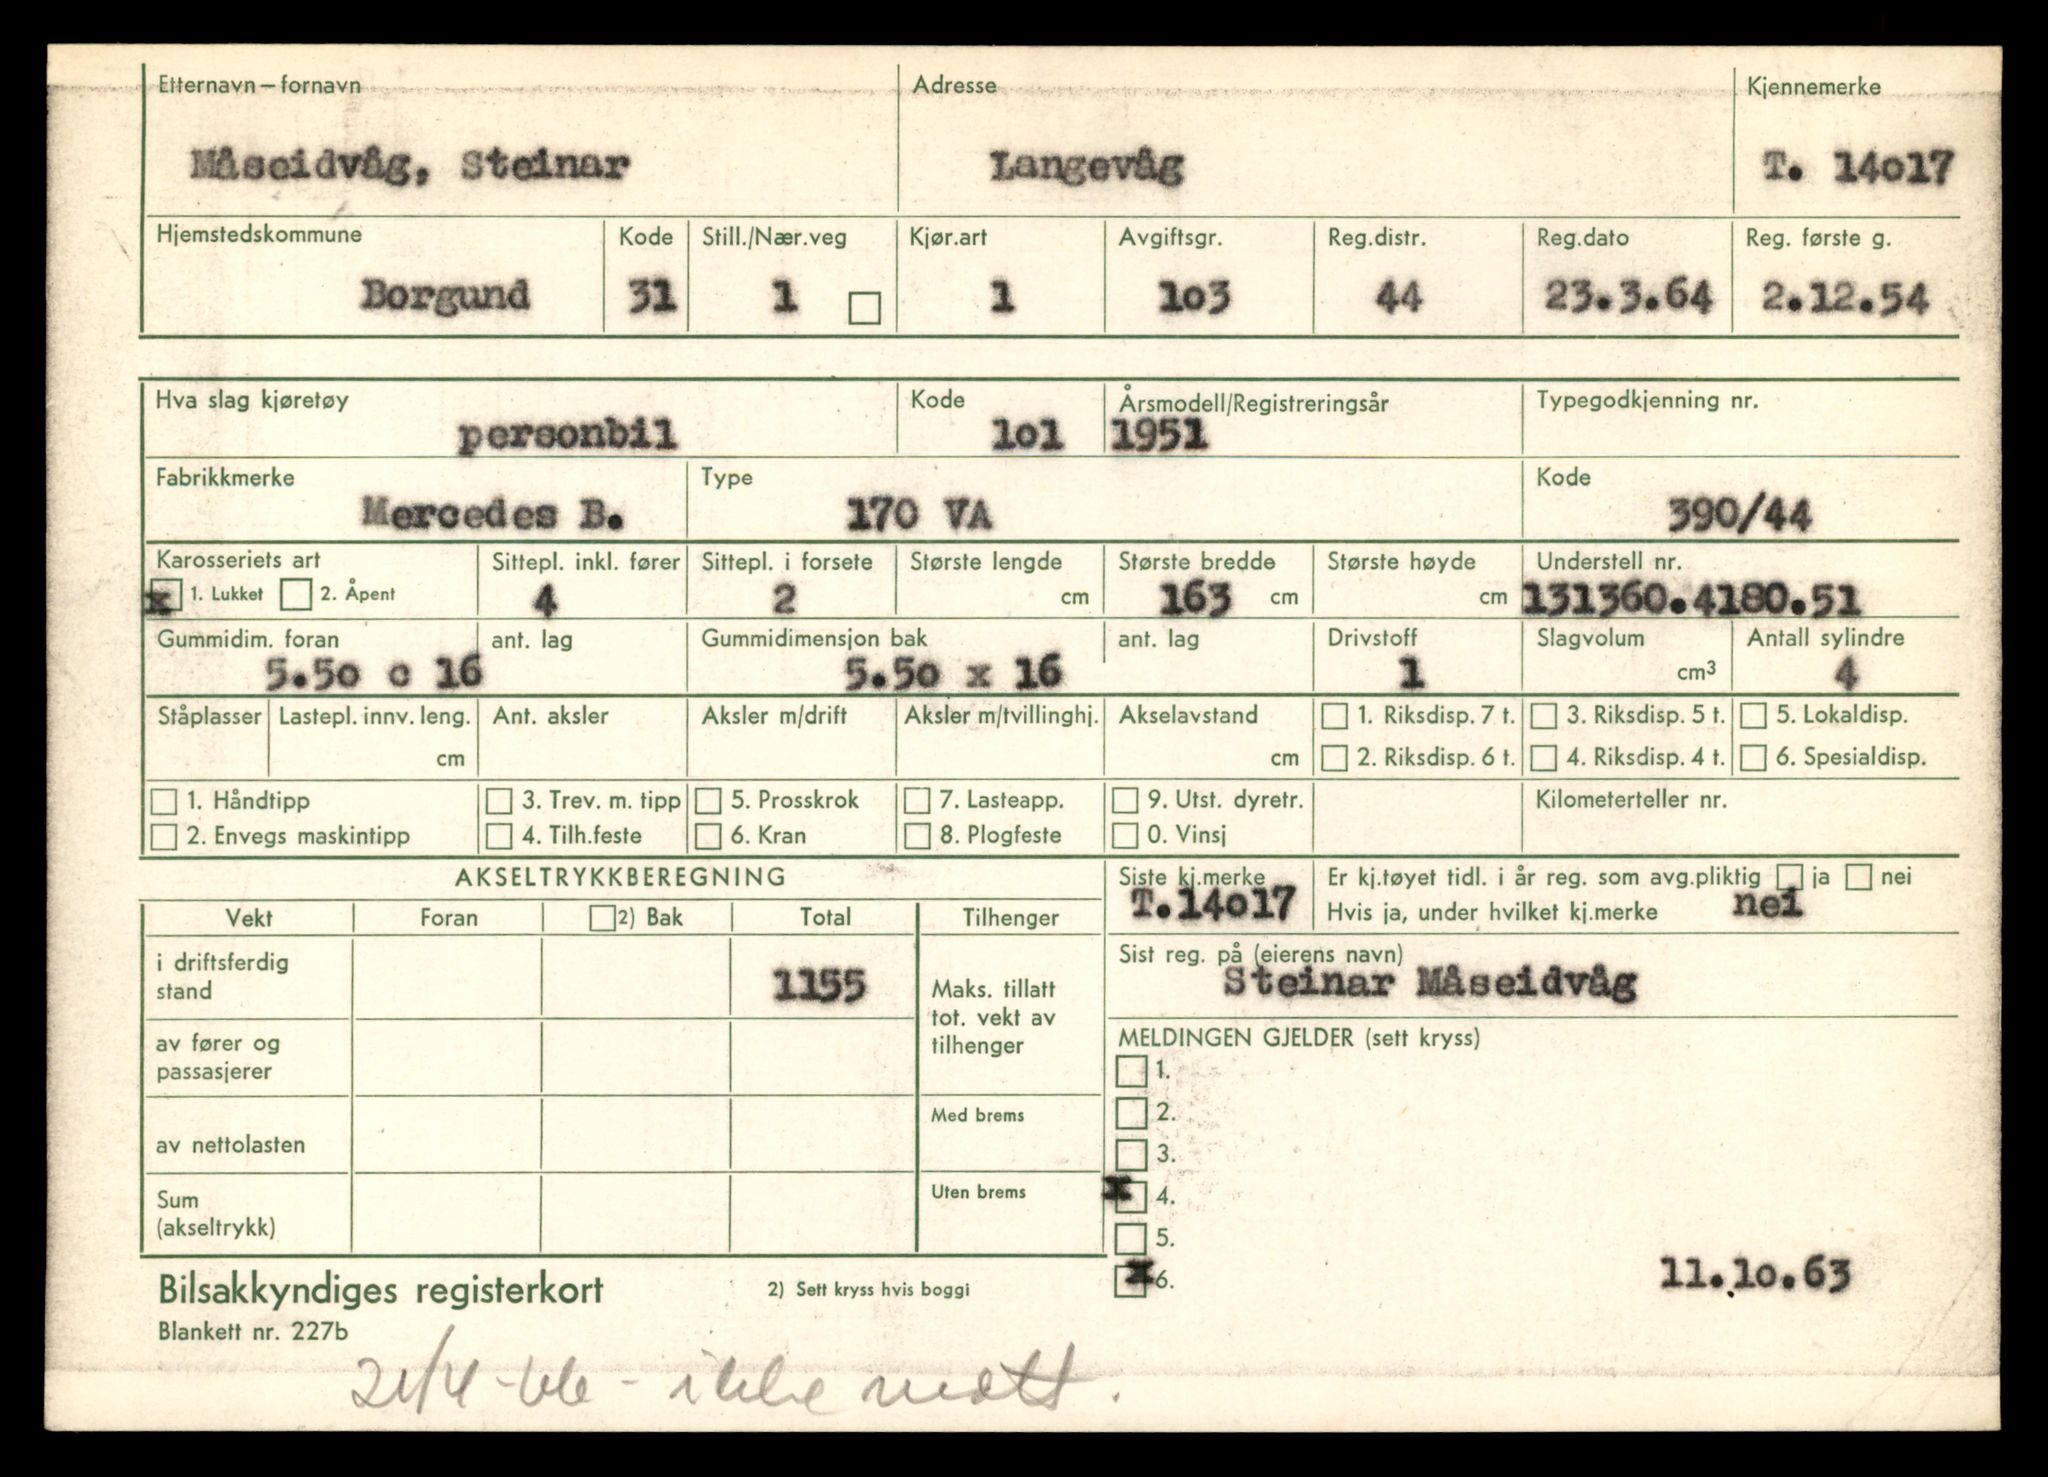 Etternavn – fornavn Adresse Kjennemerke
Måseidvåg, Steinar Langevåg T. 14o17
Hjemstedskommune Kode Still./Nær.veg Kjør.art Avgiftsgr. Reg.distr. Reg.dato Reg. første g.
Borgund 31 1 1 1o3 44 23.3.64 2.12.54
Hva slag kjøretøy Kode Årsmodell/Registreringsår Typegodkjenning nr.
personbil 1o1 1951
Fabrikkmerke Type Kode
Mercedes B. 170 VA 390/44
Karosseriets art Sittepl. inkl. fører Sittepl. i forsete Største lengde Største bredde Største høyde Understell nr.
x 1. Lukket 2. Åpent 4 2 cm 163 cm cm 131360.4180.51
Gummidim. foran ant. lag Gummidimensjon bak ant. lag Drivstoff Slagvolum Antall sylindre
5.5o c 16 5.5o x 16 1 cm3 4
Ståplasser Lastepl. innv. leng. Ant. aksler Aksler m/drift Aksler m/tvillinghj. Akselavstand 1. Riksdisp. 7 t. 3. Riksdisp. 5 t. 5. Lokaldisp.
cm cm 2. Riksdisp. 6 t. 4. Riksdisp. 4 t. 6. Spesialdisp.
1. Håndtipp 3. Trev. m. tipp 5. Prosskrok 7. Lasteapp. 9. Utst. dyretr. Kilometerteller nr.
2. Envegs maskintipp 4. Tilh.feste 6. Kran 8. Plogfeste 0. Vinsj
AKSELTRYKKBEREGNING Siste kj.merke Er kj.tøyet tidl. i år reg. som avg.pliktig ja nei
Vekt Foran 2) Bak Total Tilhenger T.14o17 Hvis ja, under hvilket kj.merke nei
i driftsferdig stand 1155 Maks. tillatt tot. vekt av tilhenger
Sist reg. på (eierens navn)
Steinar Måseidvåg
av fører og passasjerer
MELDINGEN GJELDER (sett kryss)
1.
av nettolasten Med brems
2.
3.
Sum (akseltrykk) Uten brems
x 4.
5.
x 6. 11.1o.63
Bilsakkyndiges registerkort 2) Sett kryss hvis boggi
Blankett nr. 227b
21/4-66 - ikke møtt.